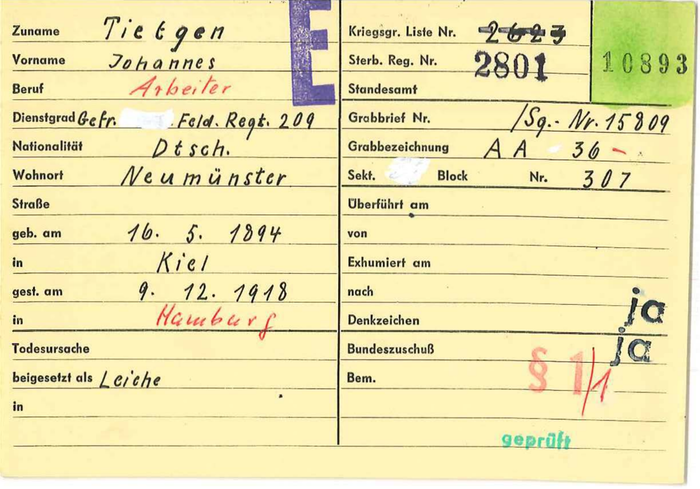 E
Zuname Tietgen
Vorname Johannes
Beruf Arbeiter
Dienstgrad Gefr. Feld. Regt. 209
Nationalität Dtsch.
Wohnort Neumünster
Straße
geb. am 16. 5. 1894
in Kiel
gest. am 9. 12. 1918
in Hamburg
Todesursache
beigesetzt als Leiche
in
Kriegsgr. Liste Nr. 2623
Sterb. Reg. Nr. 2801
10893
Standesamt
Grabbrief Nr. /Sg.- Nr. 15809
Grabbezeichnung AA 36 -
Sekt. Block Nr. 307
Überführt am
von
Exhumiert am
nach
Denkzeichen ja
Bundeszuschuß ja
Bem. § 1/1
geprüft